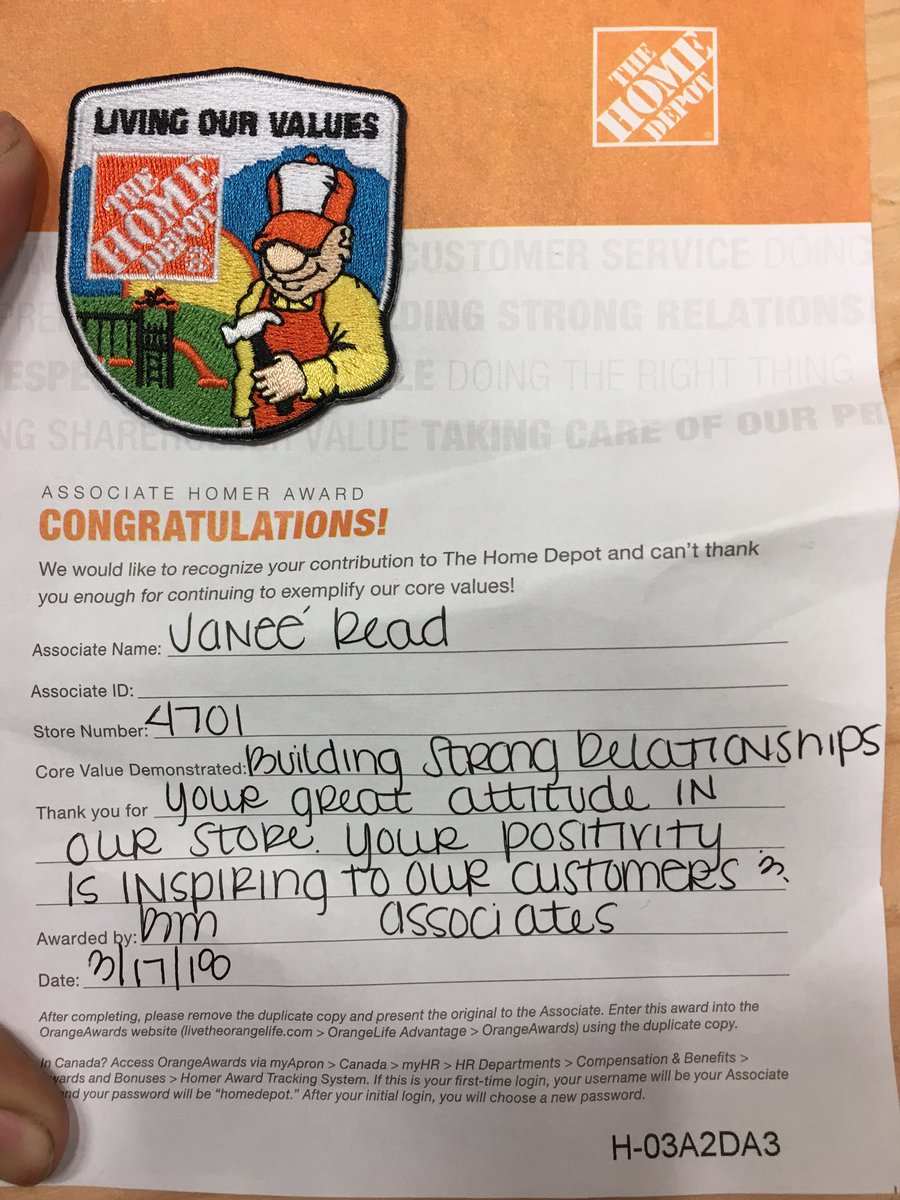 LIVING OUR VALUES
THE
HOME
DEPOT
THE
HOME
DEPOT
CUSTOMER SERVICE DOING
DING STRONG RELATIONS
ESPE LE DOING THE RIGHT THING
NG SHAREHOLDER VALUE TAKING CARE OF OUR PE
ASSOCIATE HOMER AWARD
CONGRATULATIONS!
We would like to recognize your contribution to The Home Depot and can't thank
you enough for continuing to exemplify our core values!
Associate Name: Vaneé Read
Associate ID:
Store Number: 4701
Core Value Demonstrated: Building Strong Relationships
Thank you for your great attitude in
our store. Your positivity
is inspiring to our customers &
associates
Awarded by:
Date: 3/17/
After completing, please remove the duplicate copy and present the original to the Associate. Enter this award into the
OrangeAwards website (livetheorangelife.com > OrangeLife Advantage > OrangeAwards) using the duplicate copy.
In Canada? Access OrangeAwards via myApron > Canada > myHR > HR Departments > Compensation & Benefits >
wards and Bonuses > Homer Award Tracking System. If this is your first-time login, your username will be your Associate
and your password will be "homedepot." After your initial login, you will choose a new password.
H-03A2DA3